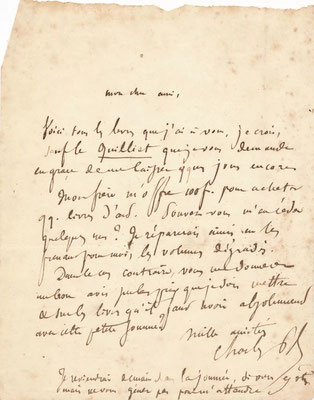 mon cher ami,
Voici tous les livres que j'ai à vous, je crois,
sauf le Quilliet que je vous demande
en grace de me laisser qques jours encore
Mon frère m'offre 100f. pour acheter
qq. livres d'art. Pouvez-vous m'en céder
quelques uns? Je réparerais ainsi en les
prenant pour moi, les volumes dégradés.
Dans le cas contraire, vous me donnerez
un bon avis sur les prix que je dois mettre
et sur les livres qu'il faut avoir absolument
avec cette petite somme.
mille amitiés
Je reviendrai demain dans la journée, si vous y êtes
mais ne vous gênez pas pour m'attendre